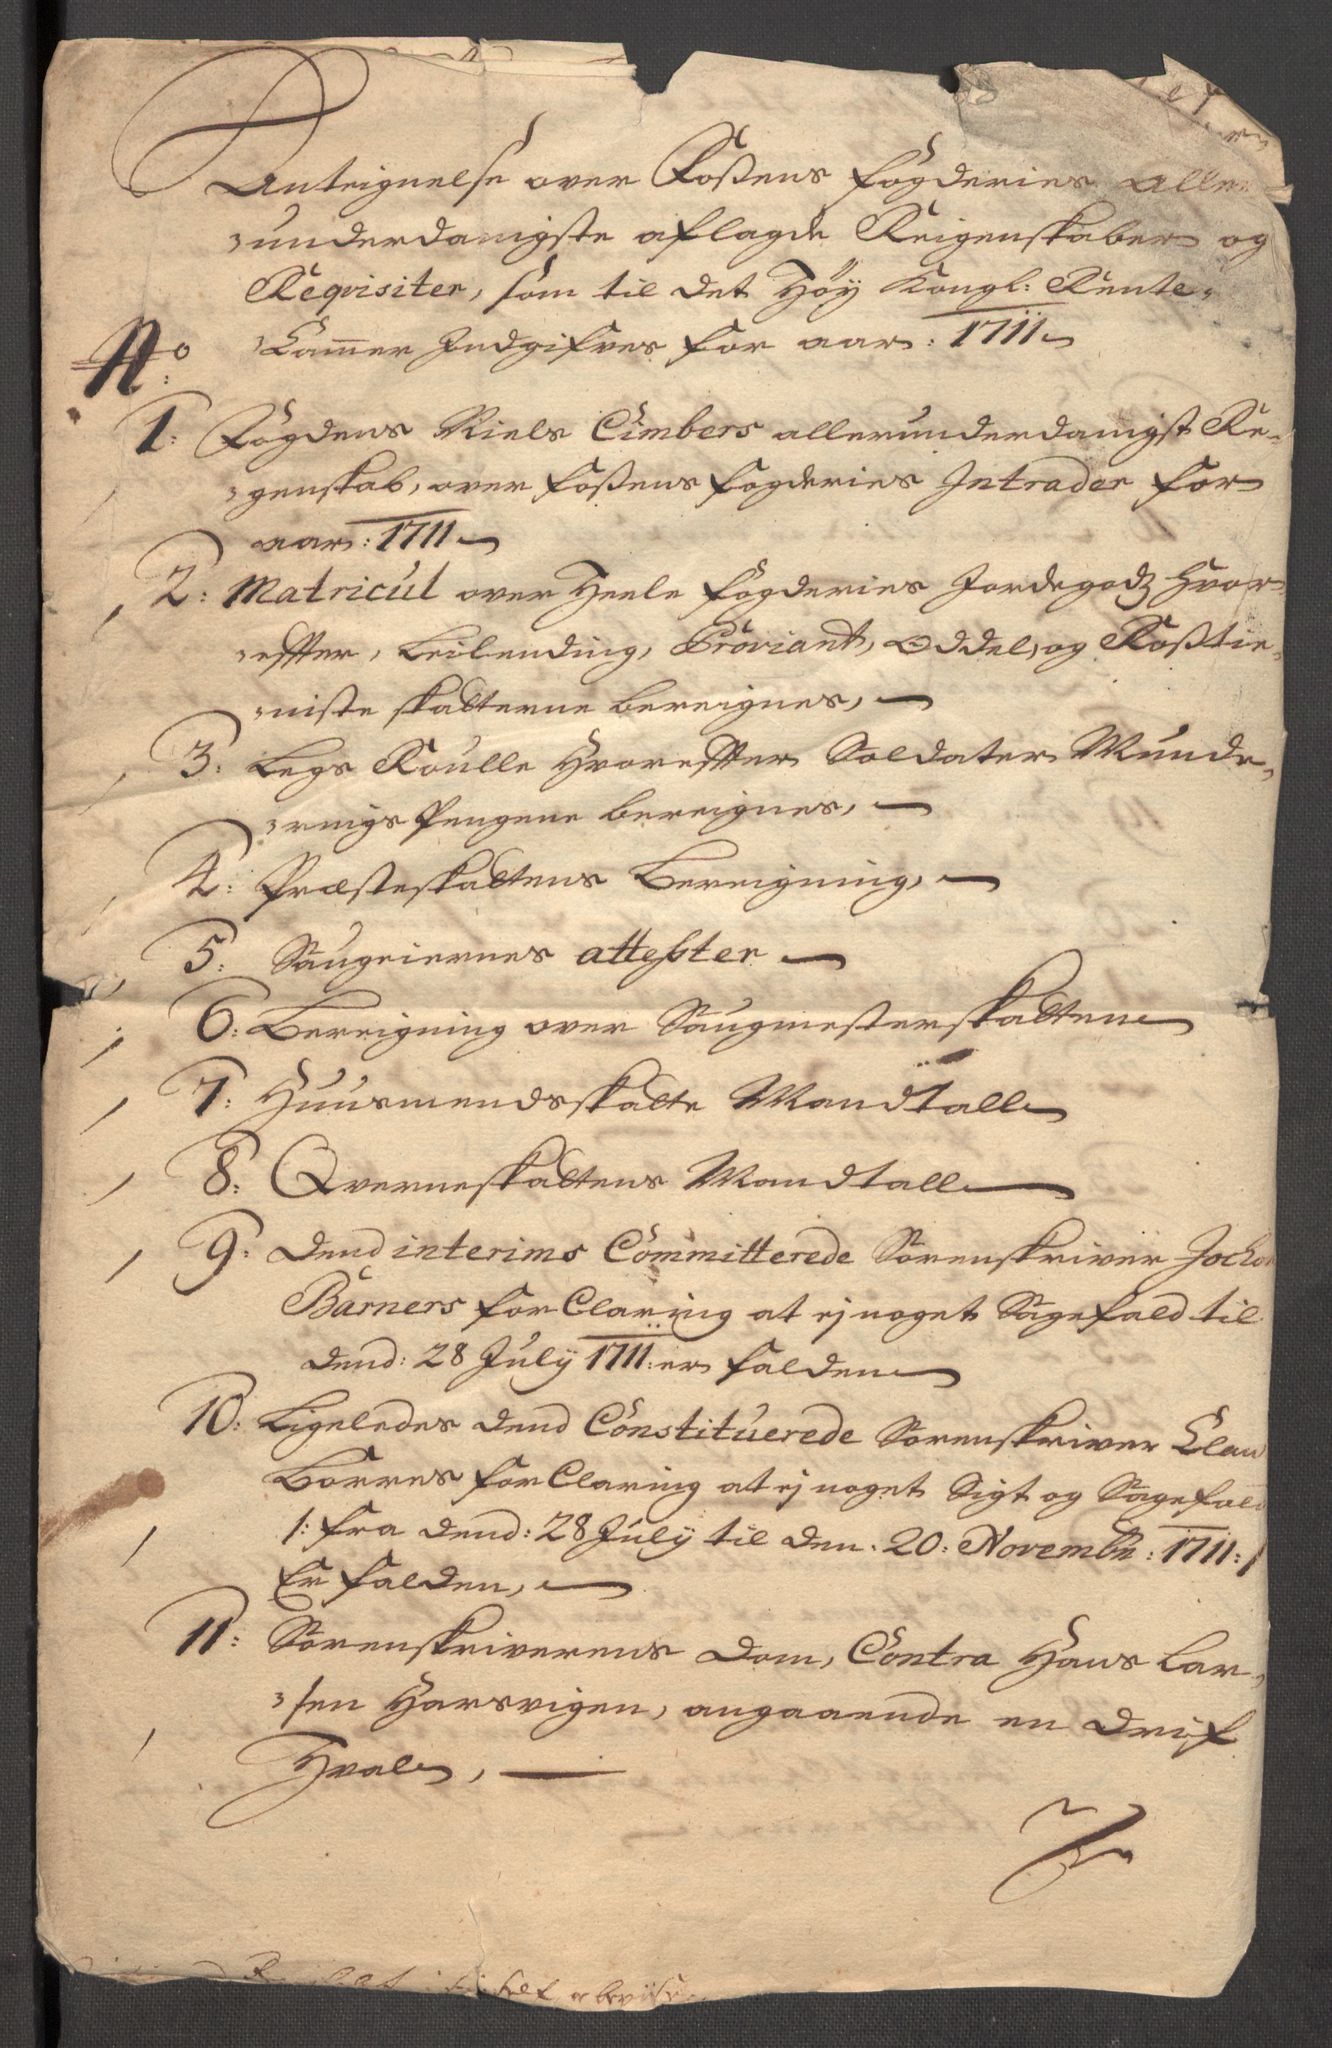 Anteignelse over Foßens fogderies aller
underdanigste aflagde Reigenskaber og
Reqvisiter, som til det Höy Kongl: Rente
Cammer Indgifves for aar: 1711
No
1: Fogdens Niels Cimbers allerunderdanigst Re-
genskab, over Foßens fogderies Intrader for
aar: 1711
2: Matricul over Heele fogderies Jordegodz hvor-
effter, Leilending, Proviant, Oddel, og Roßtie-
niste skatterne bereignes,
3: Legs Roulle hvoreffter Soldater Munde-
rings Pengene bereignes,
4: Præsteskattens Bereigning,
5: Saugeiernes attester
6: Bereigning over Saugmesterskatten
7: Huusmendsskatte Mandtall
8: Qverneskattens Mandtall
9: Dend interims Committerede Sorenskriver Jochom
Barners forClaring at ej noget Sagefald til
dend: 28 July 1711: er falden
10: Ligeledes dend Constituerede Sorenskriver Claus
Borres forClaring at ej noget Sigt og Sagefald
/: fra dend: 28 July til den. 20: Novembr: 1711:/
Er falden,
11: Sorenskriverens Dom, Contra Hans Lar-
sen Harsvigen, angaaende en Drif
Hval,